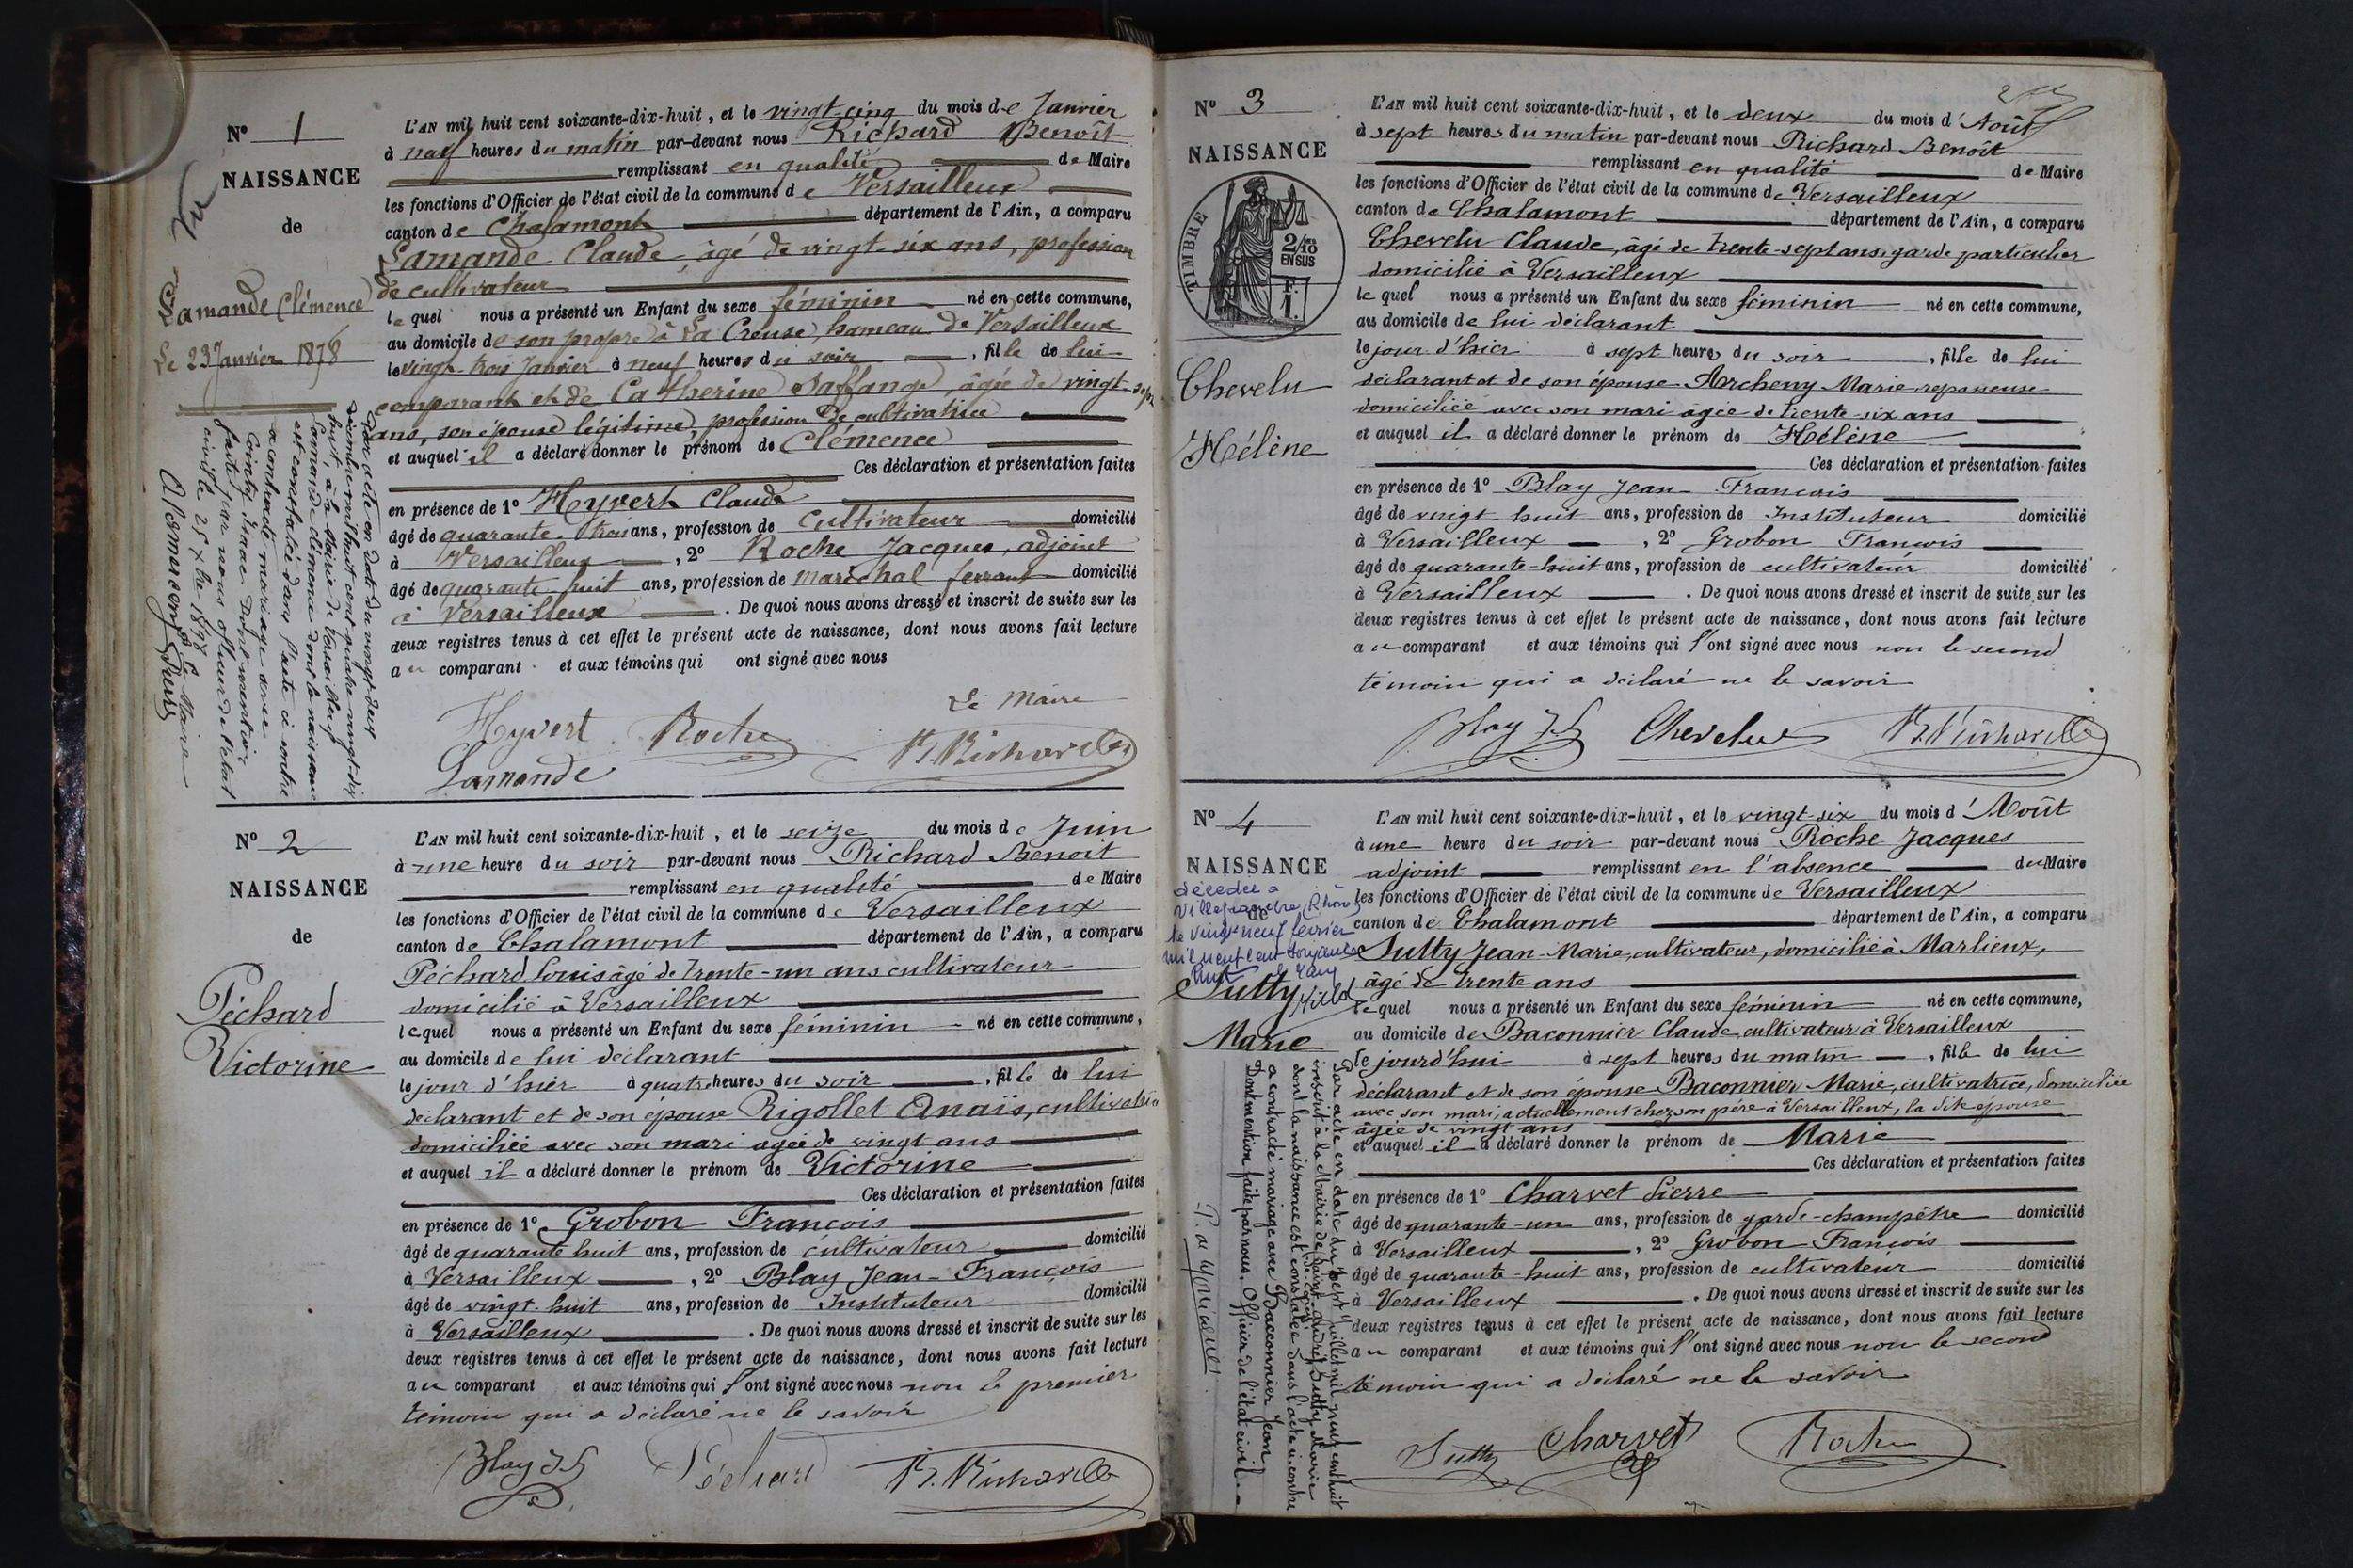 N° 1
NAISSANCE
de
Lamande Clémence
Le 23 Janvier 1878
L'AN mil huit cent soixante-dix-huit, et le vingt-cinq du mois de Janvier
à neuf heures du matin par-devant nous Richard Benoît
remplissant en qualité de Maire
les fonctions d'Officier de l'état civil de la commune de Versailleux
canton de Chalamont département de l'Ain, a comparu
Lamande Claude, âgé de vingt six ans, profession
de cultivateur
lequel nous a présenté un Enfant du sexe féminin né en cette commune,
au domicile de son propre à La Creuse, hameau de Versailleux
le vingt-trois Janvier à neuf heures du soir, fille de lui
comparant et de Catherine Laffange, âgée de vingt-sept
ans, son épouse légitime, profession de cultivatrice
et auquel il a déclaré donner le prénom de Clémence
Ces déclaration et présentation faites
en présence de 1° Hyvert Claude
âgé de quarante-trois ans, profession de Cultivateur domicilié
à Versailleux, 2° Roche Jacques, adjoint
âgé de quarante-huit ans, profession de maréchal ferrant domicilié
à Versailleux. De quoi nous avons dressé et inscrit de suite sur les
deux registres tenus à cet effet le présent acte de naissance, dont nous avons fait lecture
au comparant et aux témoins qui ont signé avec nous
Le Maire
Hyvert Roche B. Richard
Lamande
Par acte en date du vingt-deux
décembre mil huit cent quatre-vingt-dix
huit, à la Mairie de Versailleux
Lamande Clémence dont la naissance
est constatée dans l'acte ci contre
a contracté mariage avec
Dont mention
faite par nous officier de l'état
civil le 25 Xbre 1898
Le Maire
N° 2
NAISSANCE
de
Péchard
Victorine
L'AN mil huit cent soixante-dix-huit, et le seize du mois de Juin
à une heure du soir par-devant nous Richard Benoit
remplissant en qualité de Maire
les fonctions d'Officier de l'état civil de la commune de Versailleux
canton de Chalamont département de l'Ain, a comparu
Péchard Louis âgé de trente-un ans cultivateur
domicilié à Versailleux
lequel nous a présenté un Enfant du sexe féminin né en cette commune,
au domicile de lui déclarant
le jour d'hier à quatre heures du soir, fille de lui
déclarant et de son épouse Rigollet Anaïs, cultivatrice
domiciliée avec son mari agée de vingt ans
et auquel il a déclaré donner le prénom de Victorine
Ces déclaration et présentation faites
en présence de 1° Grobon François
âgé de quarante huit ans, profession de cultivateur domicilié
à Versailleux, 2° Blay Jean-François
âgé de vingt-huit ans, profession de Instituteur domicilié
à Versailleux. De quoi nous avons dressé et inscrit de suite sur les
deux registres tenus à cet effet le présent acte de naissance, dont nous avons fait lecture
au comparant et aux témoins qui l'ont signé avec nous non le premier
témoin qui a déclaré ne le savoir
Blay J F Péchard B. Richard
N° 3
NAISSANCE
TIMBRE
2/10
EN SUS
F.
1.
Chevelu
Hélène
L'AN mil huit cent soixante-dix-huit, et le deux du mois d'Août
à sept heures du matin par-devant nous Richard Benoît
remplissant en qualité de Maire
les fonctions d'Officier de l'état civil de la commune de Versailleux
canton de Chalamont département de l'Ain, a comparu
Chevelu Claude, âgé de trente-sept ans, garde particulier
domicilié à Versailleux
lequel nous a présenté un Enfant du sexe féminin né en cette commune,
au domicile de lui déclarant
le jour d'hier à sept heures du soir, fille de lui
déclarant et de son épouse Archeny Marie repasseuse
domiciliée avec son mari agée de trente-six ans
et auquel il a déclaré donner le prénom de Hélène
Ces déclaration et présentation faites
en présence de 1° Blay Jean-François
âgé de vingt-huit ans, profession de Instituteur domicilié
à Versailleux, 2° Grobon François
âgé de quarante-huit ans, profession de cultivateur domicilié
à Versailleux. De quoi nous avons dressé et inscrit de suite sur les
deux registres tenus à cet effet le présent acte de naissance, dont nous avons fait lecture
au comparant et aux témoins qui l'ont signé avec nous non le second
témoin qui a déclaré ne le savoir
Blay J F Chevelu B. Richard
N° 4
NAISSANCE
de
décédée à
Villefranche (Rhône)
le vingt neuf février
mil neuf cent soixante
huit
Sutty
Marie
L'AN mil huit cent soixante-dix-huit, et le vingt-six du mois d'Août
à une heure du soir par-devant nous Roche Jacques
adjoint remplissant en l'absence du Maire
les fonctions d'Officier de l'état civil de la commune de Versailleux
canton de Chalamont département de l'Ain, a comparu
Sutty Jean-Marie, cultivateur, domicilié à Marlieux,
âgé de trente ans
lequel nous a présenté un Enfant du sexe féminin né en cette commune,
au domicile de Baconnier Claude, cultivateur à Versailleux
le jourd'hui à sept heures du matin, fille de lui
déclarant et de son épouse Baconnier Marie, cultivatrice, domiciliée
avec son mari, actuellement chez son père à Versailleux, la dite épouse
âgée de vingt ans
et auquel il a déclaré donner le prénom de Marie
Ces déclaration et présentation faites
en présence de 1° Charvet Pierre
âgé de quarante-un ans, profession de garde-champêtre domicilié
à Versailleux, 2° Grobon François
âgé de quarante-huit ans, profession de cultivateur domicilié
à Versailleux. De quoi nous avons dressé et inscrit de suite sur les
deux registres tenus à cet effet le présent acte de naissance, dont nous avons fait lecture
au comparant et aux témoins qui l'ont signé avec nous non le second
témoin qui a déclaré ne le savoir
Sutty Charvet Roche
Par acte en date du sept juillet mil neuf cent huit
inscrit à la Mairie de Sutty Marie
dont la naissance est constatée dans l'acte ci contre
a contracté mariage avec Baconnier Jean
Dont mention faite par nous, Officier de l'état civil.